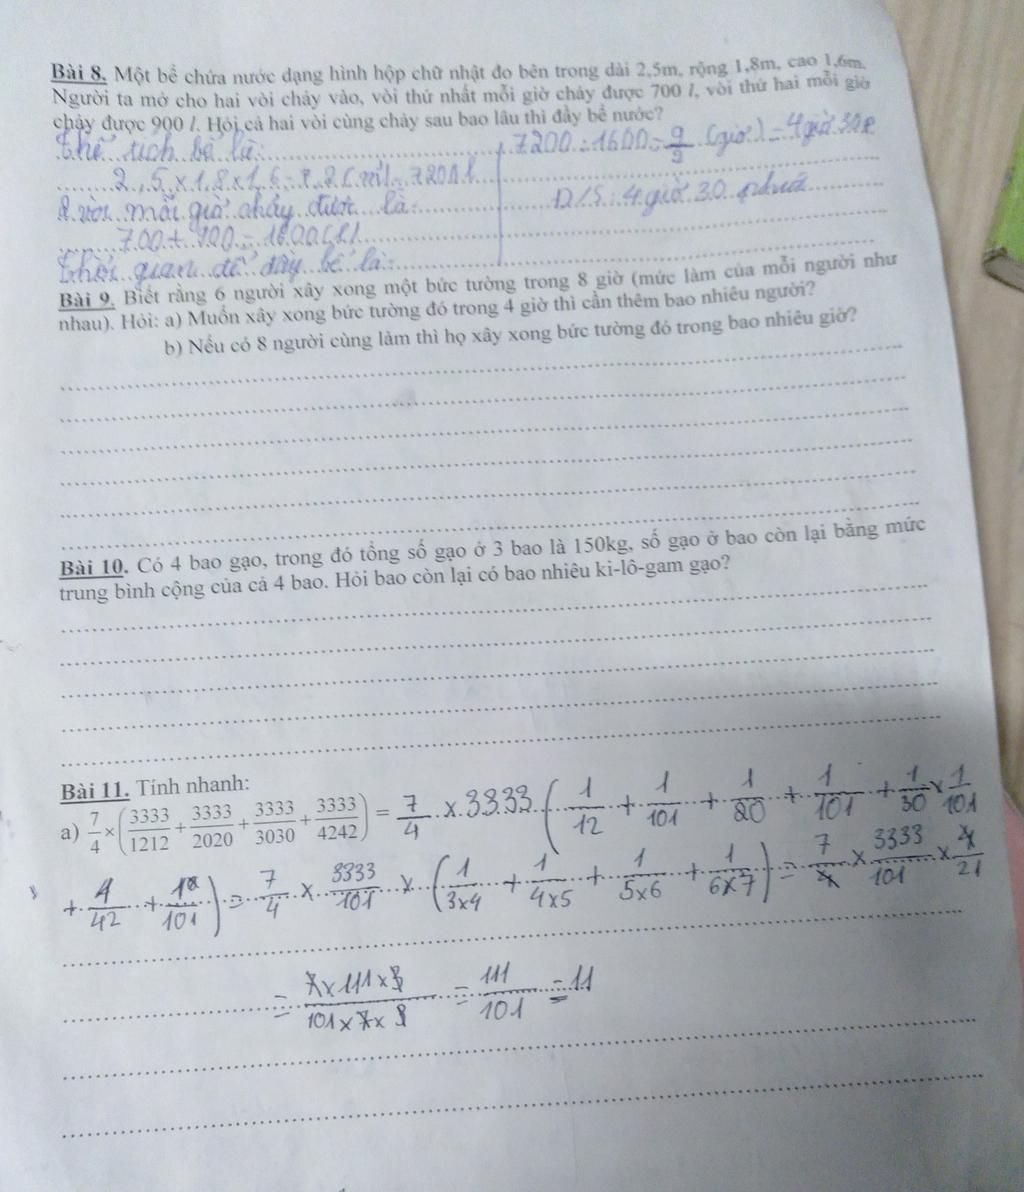 Bài 8. Một bể chứa nước dạng hình hộp chữ nhật đo bên trong dài 2,5m, rộng 1,8m, cao 1,6m.
Người ta mở cho hai vòi chảy vào, vòi thứ nhất mỗi giờ chảy được 700 l, vòi thứ hai mỗi giờ
chảy được 900 l. Hỏi cả hai vòi cùng chảy sau bao lâu thì đầy bể nước?
thể tích bể là:
2,5 x 1,8 x 1,6 = 7,2 (m³) = 7200 l
2 vòi mỗi giờ chảy được là:
700 + 900 = 1600 (l)
thời gian để đầy bể là:
7200 : 1600 = 9/2 (giờ) = 4 giờ 30p
Đ/S: 4 giờ 30 phút
Bài 9. Biết rằng 6 người xây xong một bức tường trong 8 giờ (mức làm của mỗi người như
nhau). Hỏi: a) Muốn xây xong bức tường đó trong 4 giờ thì cần thêm bao nhiêu người?
b) Nếu có 8 người cùng làm thì họ xây xong bức tường đó trong bao nhiêu giờ?
Bài 10. Có 4 bao gạo, trong đó tổng số gạo ở 3 bao là 150kg, số gạo ở bao còn lại bằng mức
trung bình cộng của cả 4 bao. Hỏi bao còn lại có bao nhiêu ki-lô-gam gạo?
Bài 11. Tính nhanh:
a) 7/4 × (3333/1212 + 3333/2020 + 3333/3030 + 3333/4242) = 7/4 x 3333 (1/12 + 1/101 + 1/20 + 1/101 + 1/30 x 1/101
+ 1/42 + 1/101) = 7/4 x 3333/101 x (1/3x4 + 1/4x5 + 1/5x6 + 1/6x7) = 7/4 x 3333/101 x 4/21
= 7x111x3/101x7x3 = 111/101 = 11